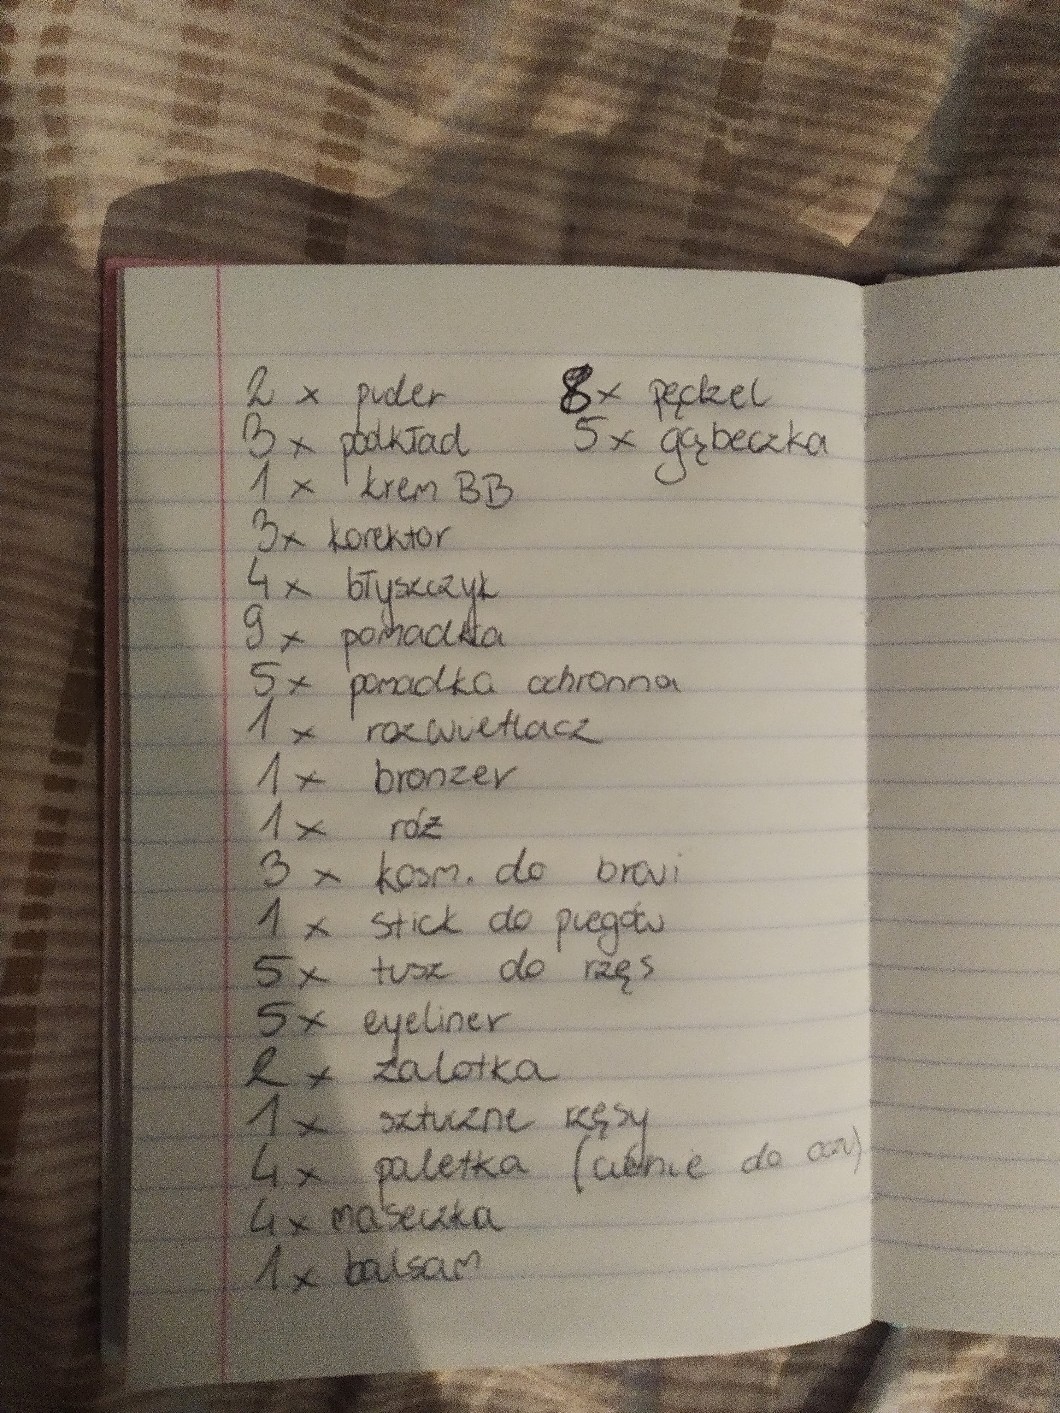 2 x puder
3 x podkład
1 x krem BB
3x korektor
4 x błyszczyk
9 x pomadka
5 x pomadka ochronna
1 x rozwietlacz
1 x bronzer
1 x róż
3 x kosm. do brwi
1 x stick do piegów
5 x tusz do rzęs
5 x eyeliner
2 x zalotka
1 x sztuczne rzęsy
4 x paletka (cienie do oczu)
4 x maseczka
1 x balsam
8x pędzel
5 x gąbeczka